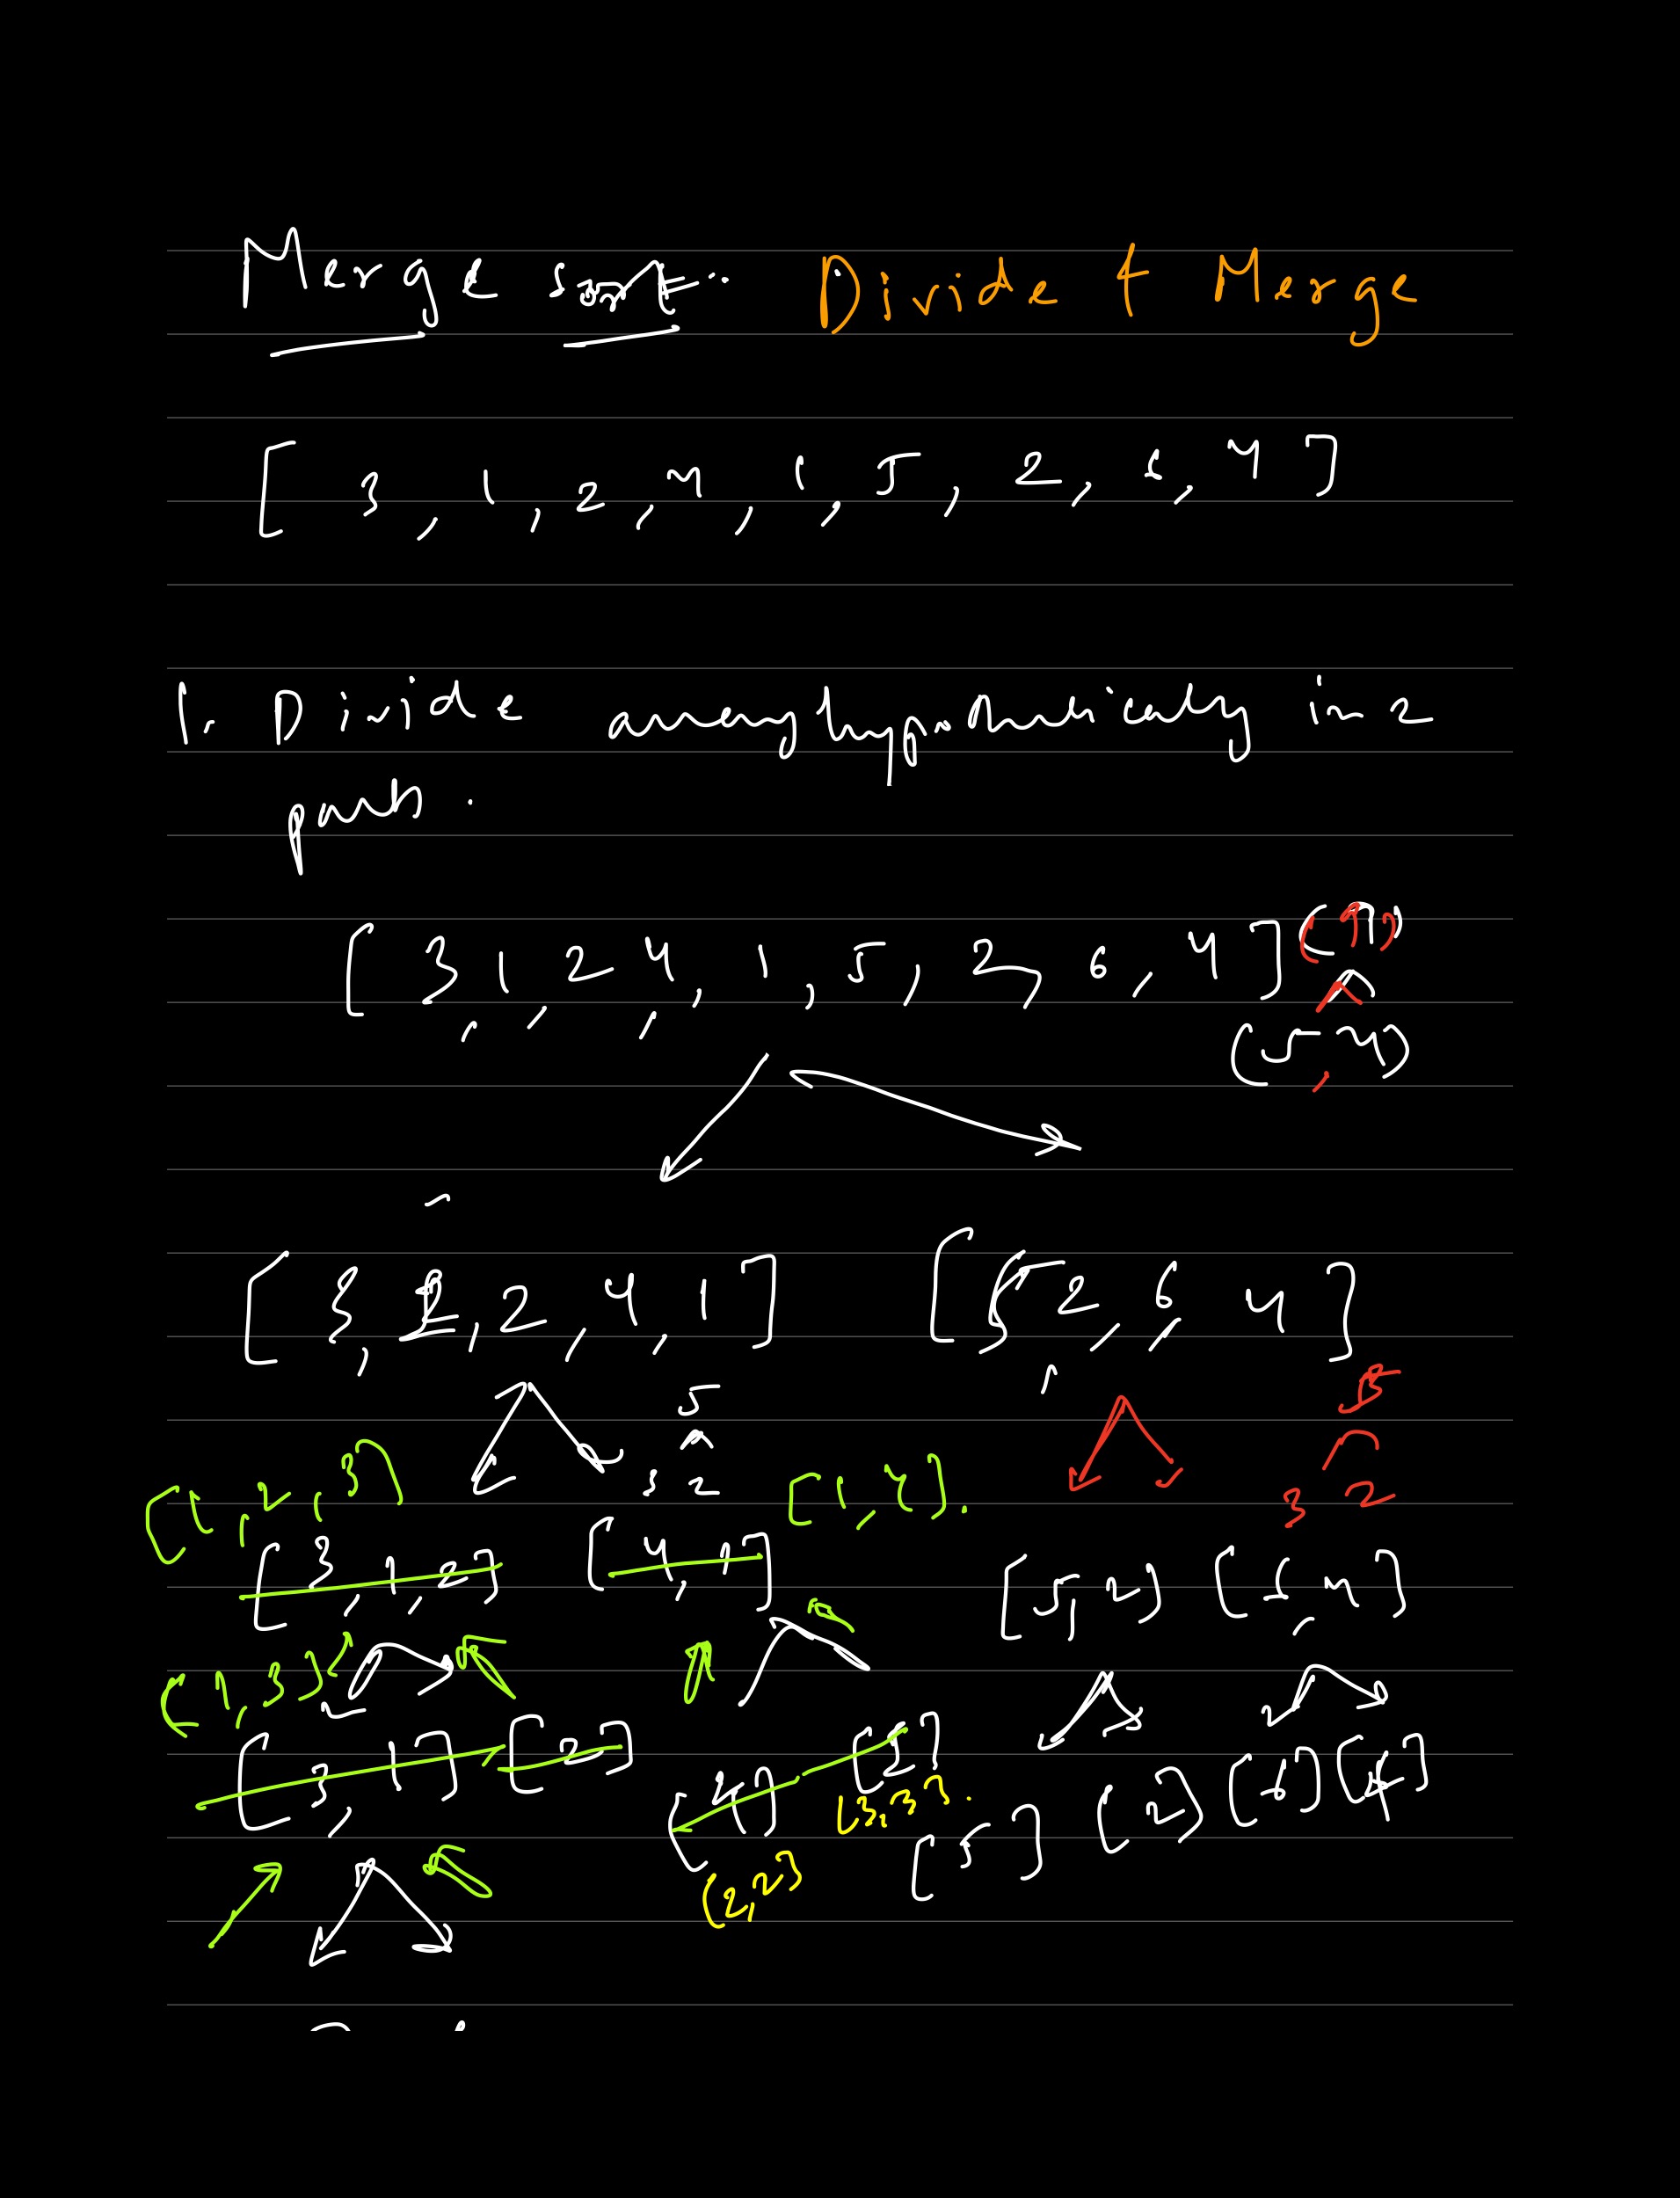 Merge sort:- Divide & Merge
[ 3, 1, 2, 4, 1, 5, 2, 6, 4 ]
1. Divide array hypothetically in 2
parts.
[ 3, 1, 2, 4, 1, 5, 2, 6, 4 ] (9)
(5, 4)
[ 3, 1, 2, 4, 1 ] [ 5, 2, 6, 4 ]
5 5
3 2 3 2
[1, 2, 3] [1, 4].
[3, 1, 2] [4, 1] [5, 2] [6, 4]
(1, 3)
[3, 1] [2] [4] [1] [5] [2] [6] [4]
(3,3).
(2,2)